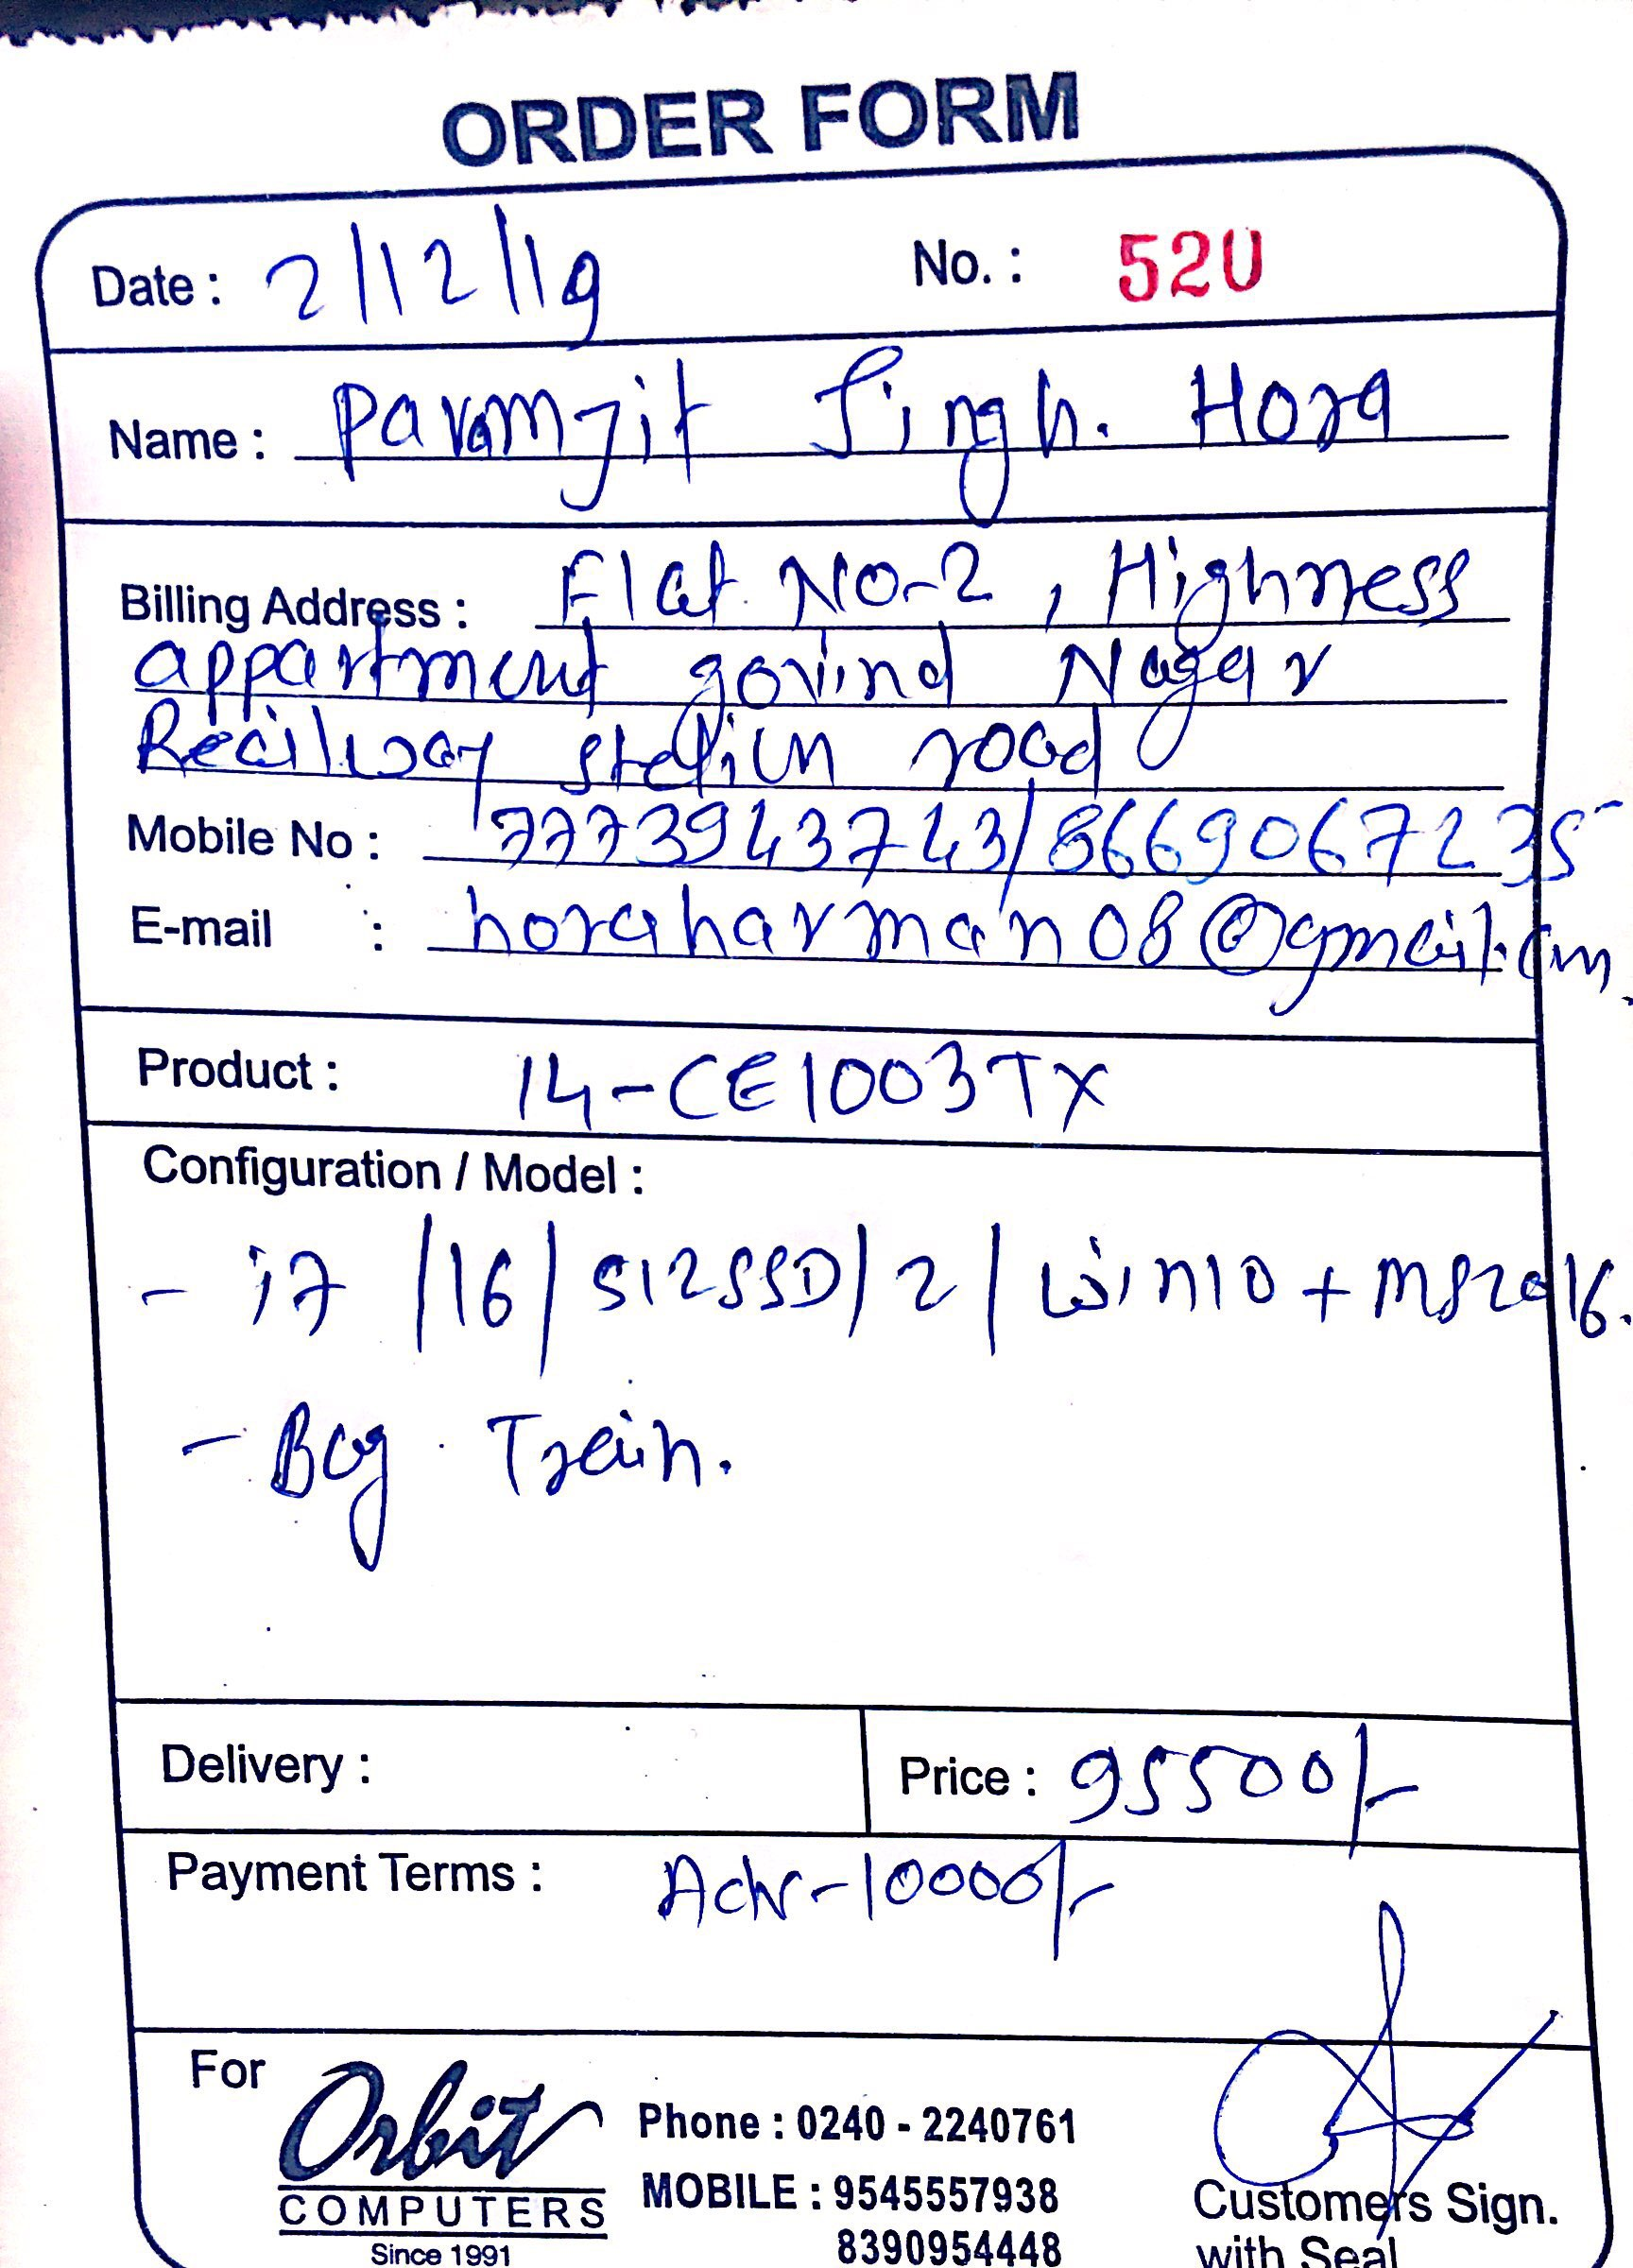 ORDER FORM
Date : 2/12/19 No. : 520
Name : Paramjit Singh. Hora
Billing Address : Flat No-2, Highness
appartment govind Nagar
Railway station road
Mobile No : 7773943743/8669067235
E-mail : horaharman08@gmail.com.
Product : 14-CE1003TX
Configuration / Model :
- i7 /16/512SSD/2/Win10 + MS2016.
- Bag Train.
Delivery : Price : 95500/-
Payment Terms : Adv-10000/-
For Orbit Phone : 0240 - 2240761
COMPUTERS MOBILE : 9545557938
Since 1991 8390954448
Customers Sign.
with Seal